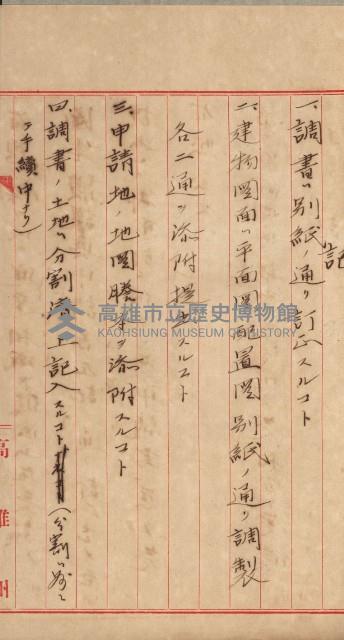 記
一、調書ハ別紙ノ通リ訂正スルコト
二、建物図面ハ平面図配置図別紙ノ通リ調製
各二通ヲ添附提出スルコト
三、申請地ノ地図謄本ヲ添附スルコト
四、調書ノ土地ハ分割済ノ上記入スルコト(分割ハ別ニ
手續中ナリ)
高雄州
高雄市立歷史博物館
KAOHSIUNG MUSEUM OF HISTORY